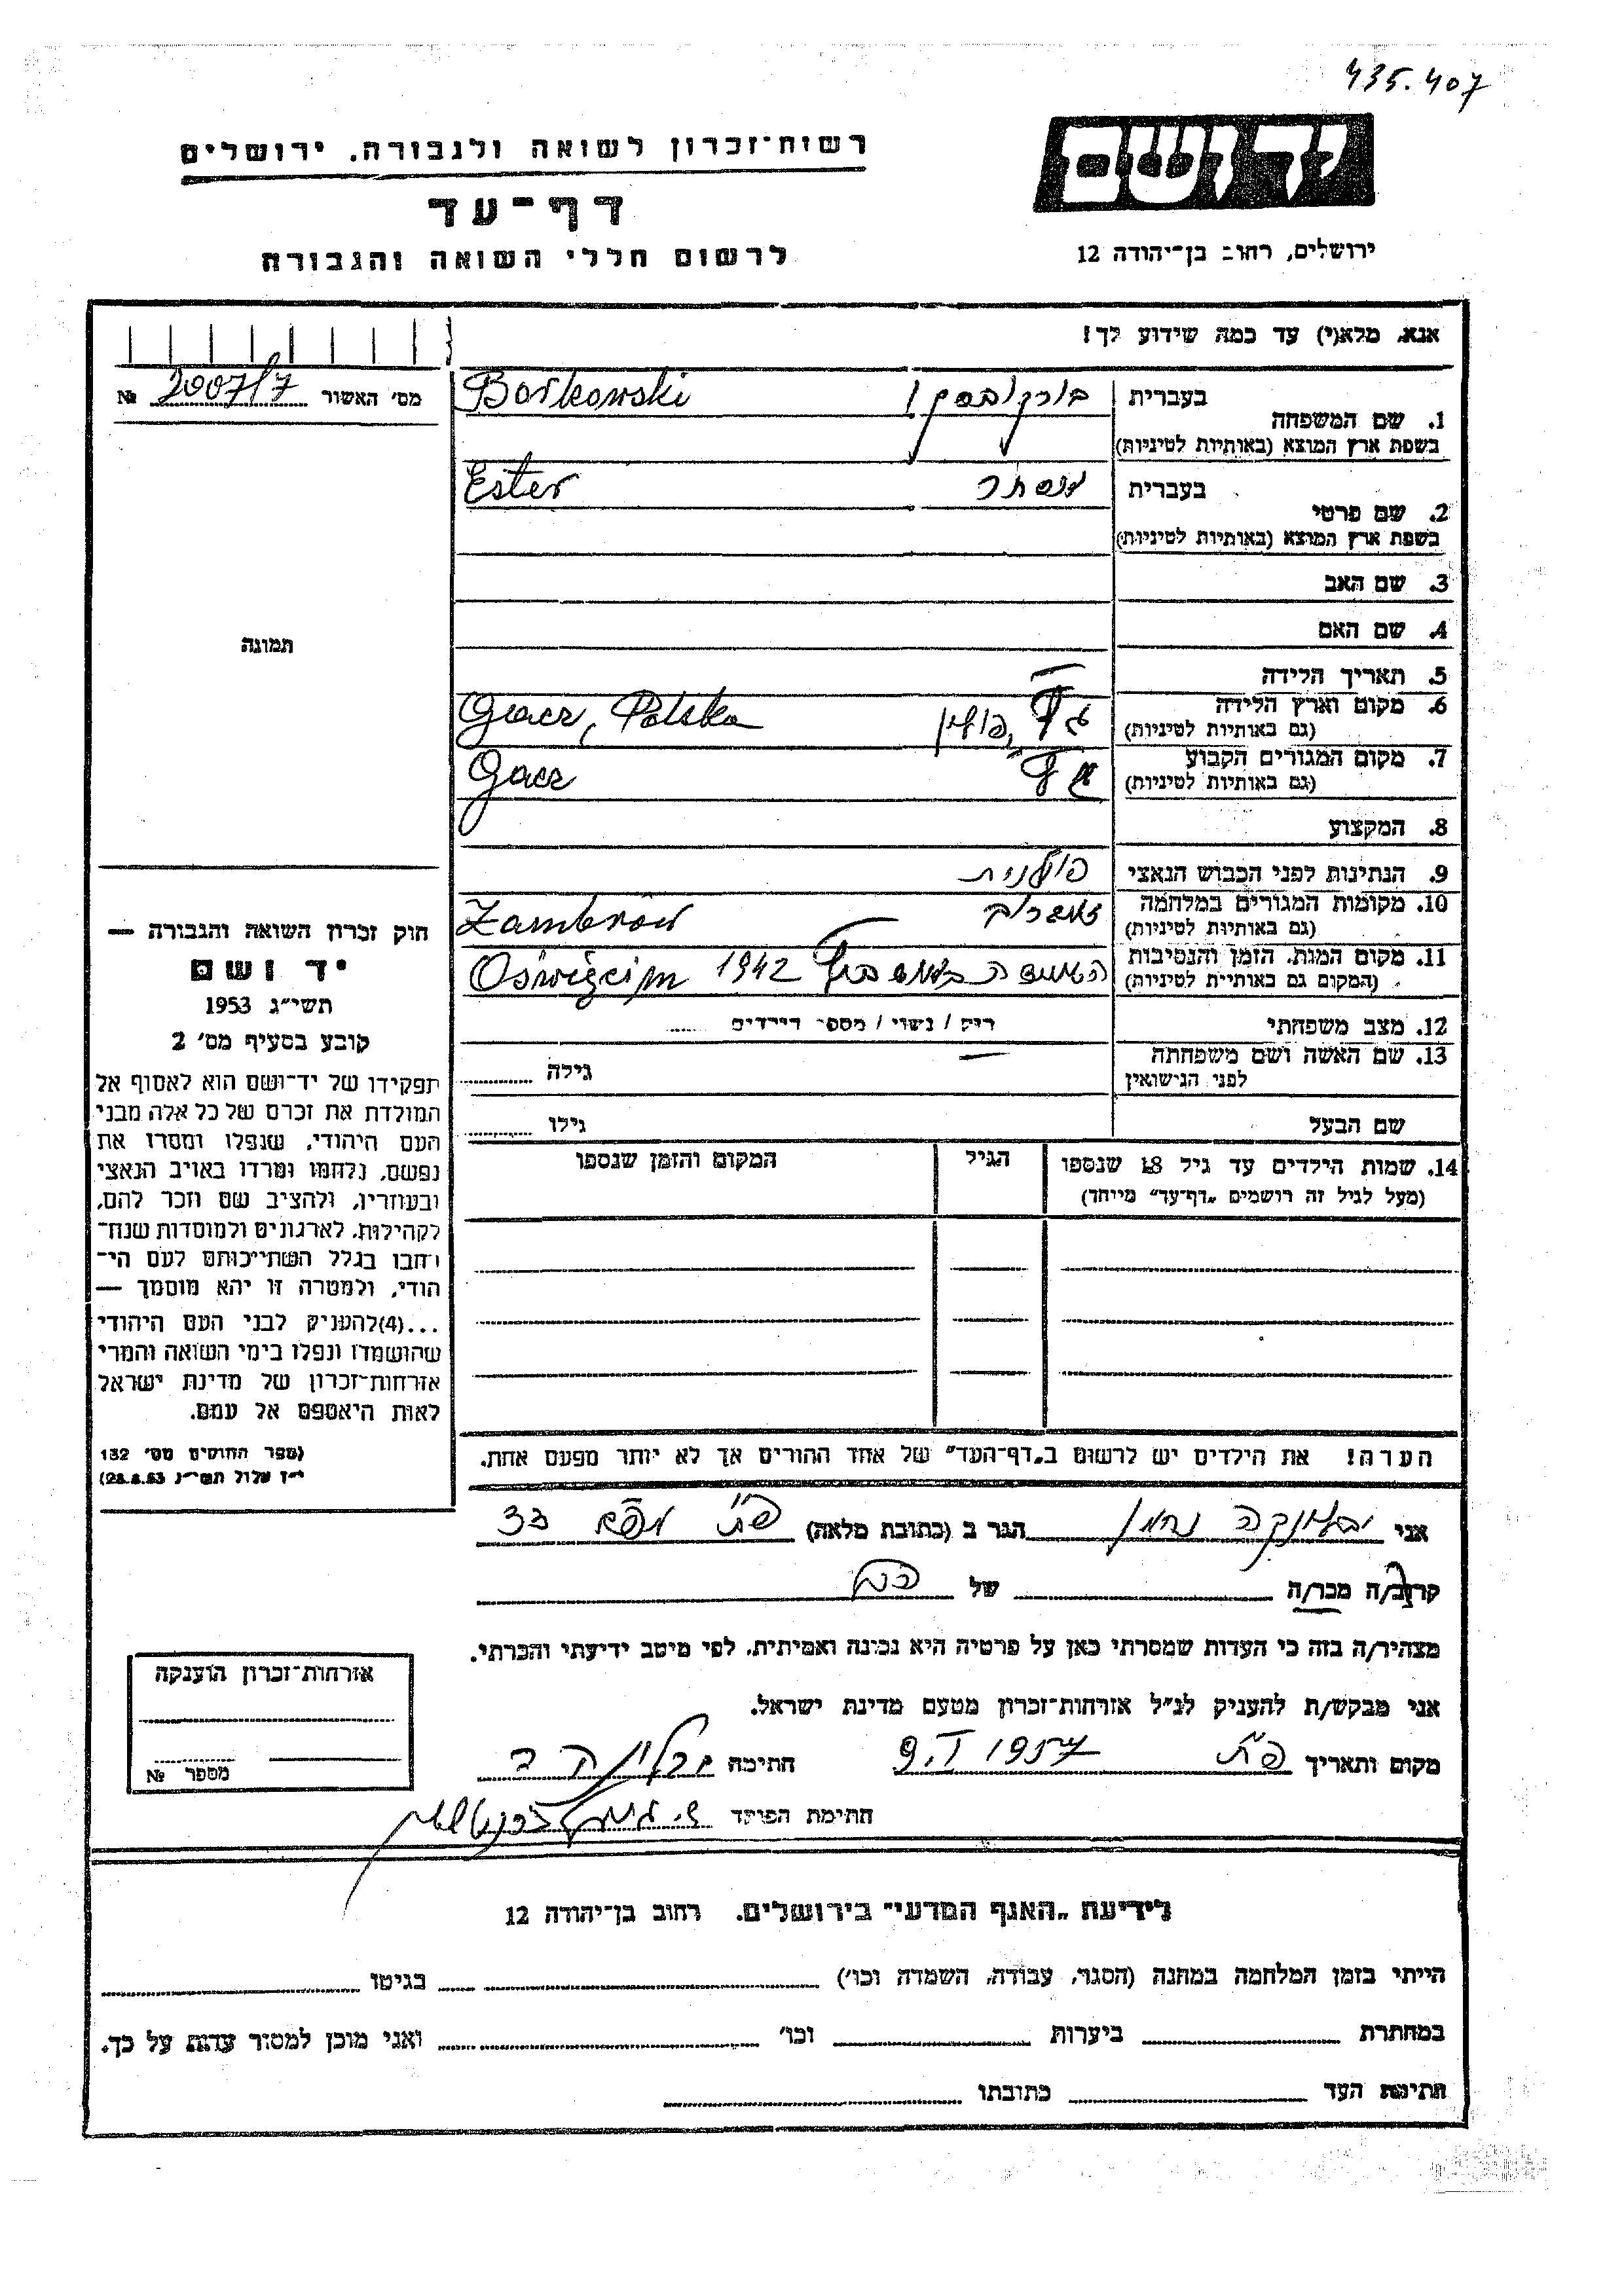 435.407
יד ושם
ירושלים, רחוב בן־יהודה 12
רשות־זכרון לשואה ולגבורה, ירושלים
דף־עד
לרשום חללי השואה והגבורה
אנא, מלא(י) עד כמה שידוע לך!
מס' האשור 2007/7 №
תמונה
חוק זכרון השואה והגבורה —
יד ושם
תשי״ג 1953
קובע בסעיף מס' 2
תפקידו של יד־ושם הוא לאסוף אל
המולדת את זכרם של כל אלה מבני
העם היהודי, שנפלו ומסרו את
נפשם, נלחמו ומרדו באויב הנאצי
ובעוזריו, ולהציב שם וזכר להם,
לקהילות, לארגונים ולמוסדות שנח־
רבו בגלל השתייכותם לעם הי־
הודי, ולמטרה זו יהא מוסמך —
...(4)להעניק לבני העם היהודי
שהושמדו ונפלו בימי השואה והמרי
אזרחות־זכרון של מדינת ישראל
לאות היאספם אל עמם.
(ספר החוקים מס' 132
י״ז אלול תשי״ג 28.8.53)
1. שם המשפחה בעברית בורקובסקי Borkowski
בשפת ארץ המוצא (באותיות לטיניות)
2. שם פרטי בעברית אסתר Ester
בשפת ארץ המוצא (באותיות לטיניות)
3. שם האב
4. שם האם
5. תאריך הלידה —
6. מקום וארץ הלידה פולין Gacz, Polska
(גם באותיות לטיניות)
7. מקום המגורים הקבוע Gacz
(גם באותיות לטיניות)
8. המקצוע
9. הנתינות לפני הכבוש הנאצי פולנית
10. מקומות המגורים במלחמה זאמברוב Zambrów
(גם באותיות לטיניות)
11. מקום המות, הזמן והנסיבות 1942 Oświęcim
(המקום גם באותיות לטיניות)
12. מצב משפחתי רוק / נשוי / מספר הילדים
13. שם האשה ושם משפחתה — גילה
לפני הנישואין
שם הבעל גילו
14. שמות הילדים עד גיל 18 שנספו הגיל המקום והזמן שנספו
(מעל לגיל זה רושמים „דף־עד״ מייחד)
הערה! את הילדים יש לרשום ב„דף־העד״ של אחד ההורים אך לא יותר מפעם אחת.
אני יבלונקה נחמן הגר ב (כתובת מלאה) פ״ת 33
קרוב/ה מכר/ה של
מצהיר/ה בזה כי העדות שמסרתי כאן על פרטיה היא נכונה ואמיתית, לפי מיטב ידיעתי והכרתי.
אני מבקש/ת להעניק לנ״ל אזרחות־זכרון מטעם מדינת ישראל.
מקום ותאריך פ״ת 9.I 1957 חתימה יבלונקה נ
חתימת הפוקד
אזרחות־זכרון הוענקה
מספר №
לידיעת „האגף המדעי״ בירושלים, רחוב בן־יהודה 12
הייתי בזמן המלחמה במחנה (הסגר, עבודה, השמדה וכו') בגיטו
במחתרת ביערות וכו' ואני מוכן למסור עדות על כך.
חתימת העד כתובתו